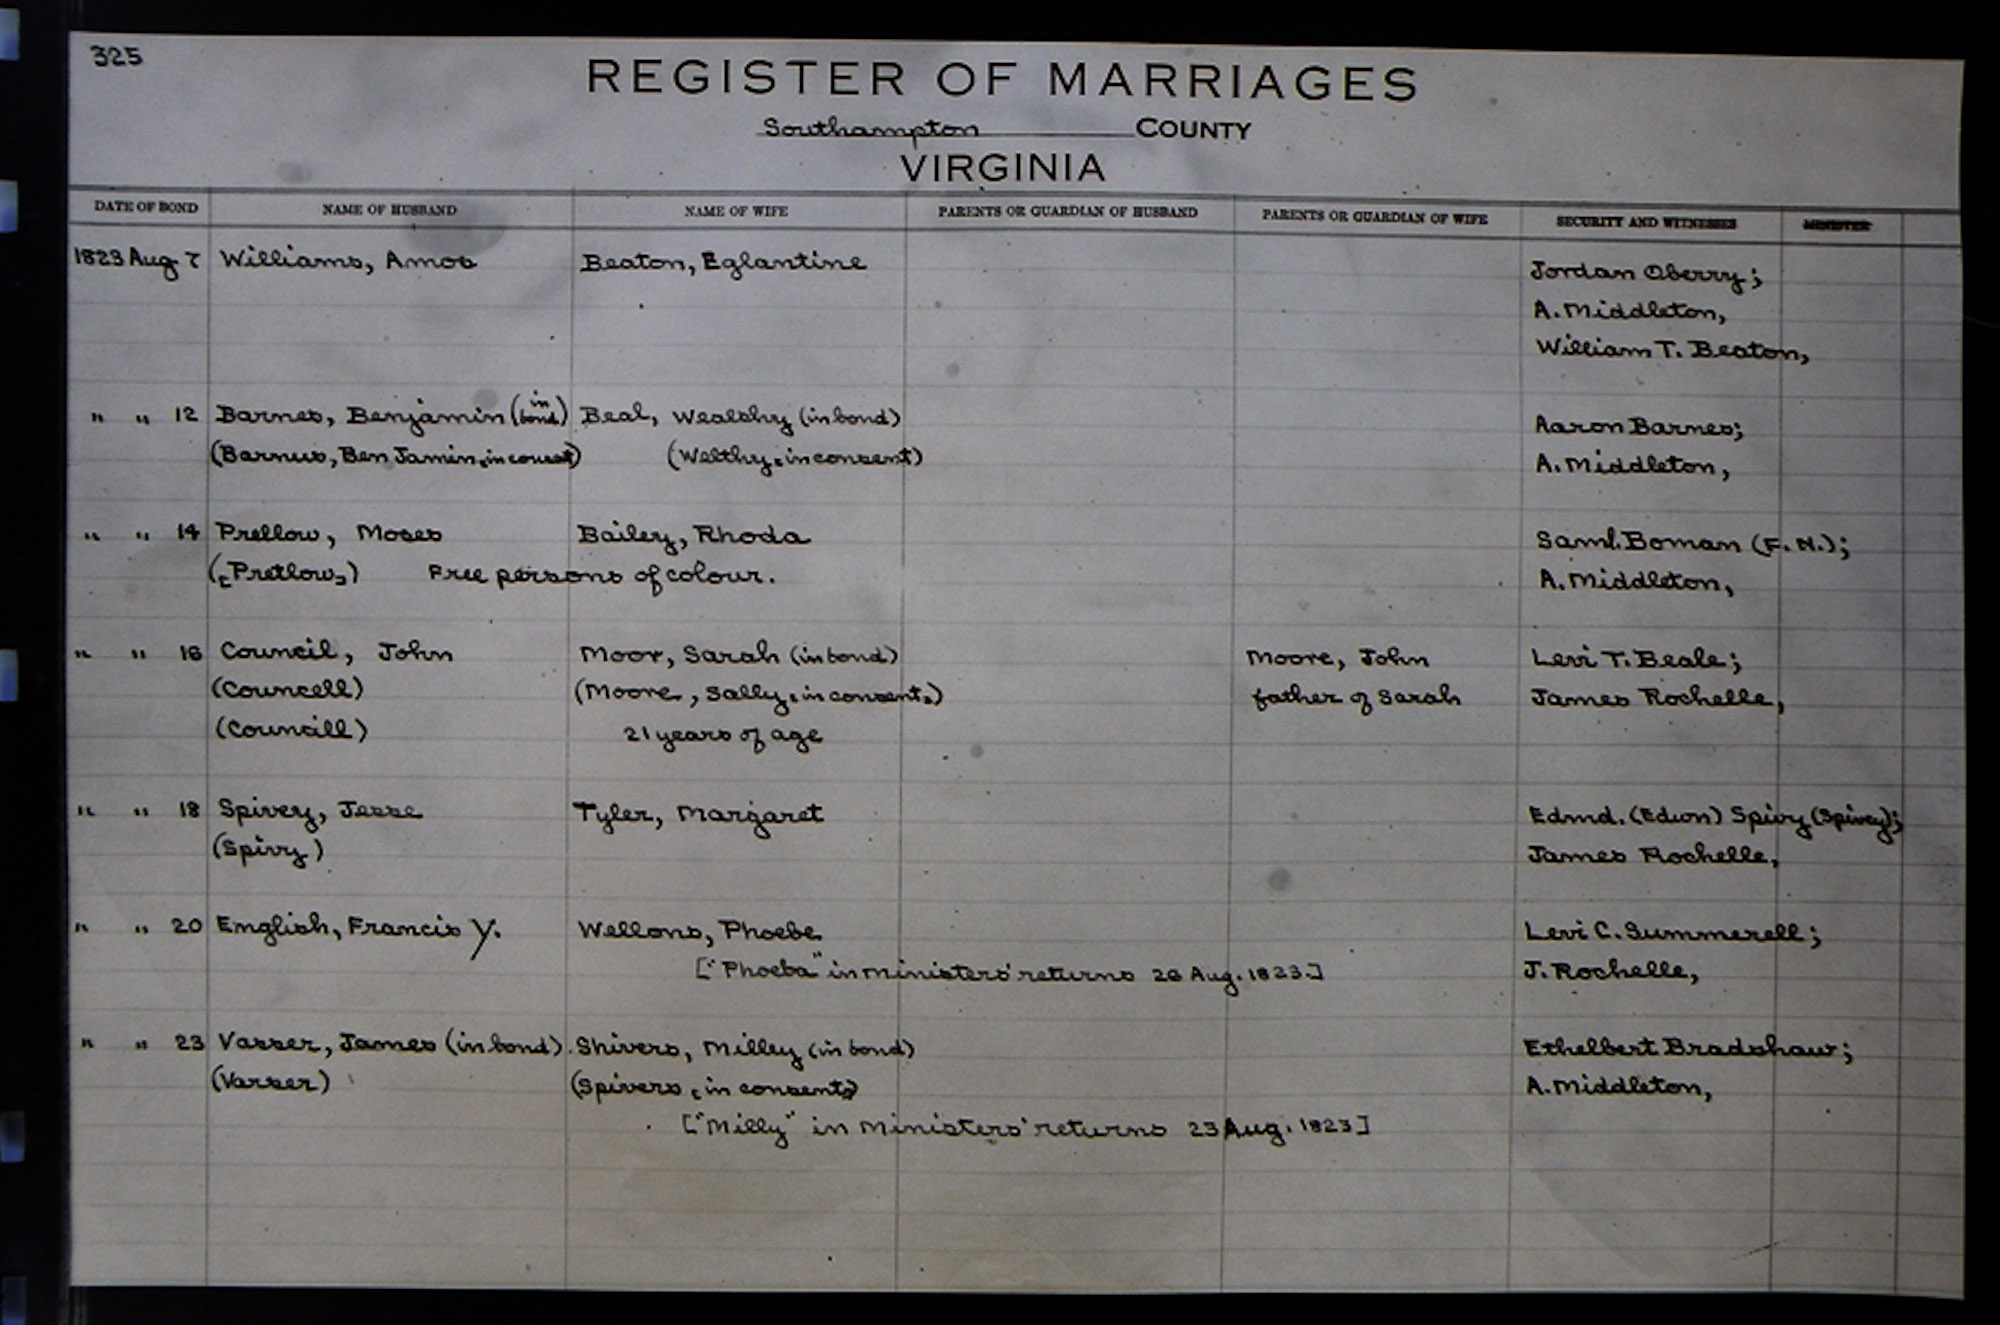 325
REGISTER OF MARRIAGES
Southampton COUNTY
VIRGINIA
DATE OF BOND NAME OF HUSBAND NAME OF WIFE PARENTS OR GUARDIAN OF HUSBAND PARENTS OR GUARDIAN OF WIFE SECURITY AND WITNESSES MINISTER
1823 Aug 7 Williams, Amos Beaton, Eglantine Jordan Oberry;
A. Middleton,
William T. Beaton,
" " 12 Barnes, Benjamin (in bond) Beal, Wealthy (in bond) Aaron Barnes;
(Barnus, Ben Jamin, in consent) (Welthy, in consent) A. Middleton,
" " 14 Prellow, Moses Bailey, Rhoda Saml. Boman (F. N.);
([Pretlow]) Free persons of colour. A. Middleton,
" " 16 Council, John Moor, Sarah (in bond) Moore, John Levi T. Beale;
(Councell) (Moore, Sally, in consent,) father of Sarah James Rochelle,
(Councill) 21 years of age
" " 18 Spivey, Jesse Tyler, Margaret Edmd. (Edwn) Spivy (Spivey);
(Spivy) James Rochelle,
" " 20 English, Francis Y. Wellons, Phoebe Levi C. Summerell;
["Phoeba" in ministers' returns 28 Aug. 1823.] J. Rochelle,
" " 23 Vasser, James (in bond). Shivers, Milley (in bond) Ethelbert Bradshaw;
(Varser) (Spivers, in consent) A. Middleton,
["Milly" in ministers' returns 23 Aug. 1823]